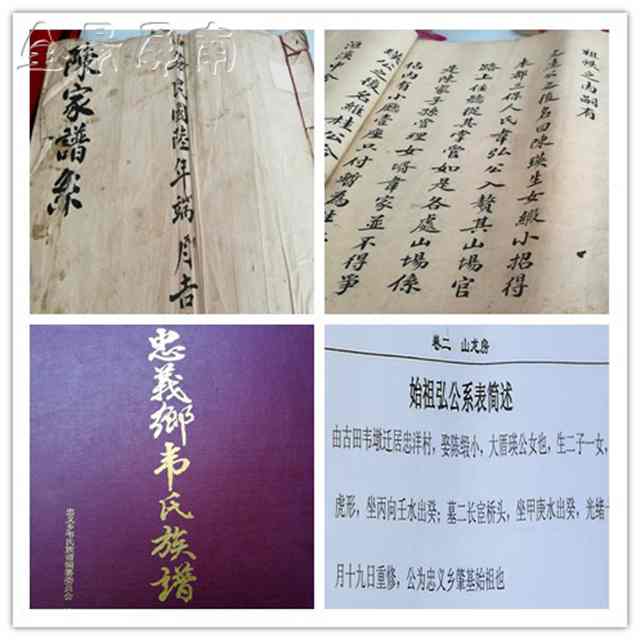 全景屏南
陳家譜系
民國陸年端月吉
祖帙之内嗣有
名曰陳瑛生女緞小招得
本都三保人氏韋弘公入赘其山場官
路上任聽從其掌管如是各處山場係
是陳家子孫管理女婿韋家並不得爭
佔内有小廳壹座只付暫為
瑛公之後名雖
忠義鄉韦氏族譜
忠义乡韦氏族谱编纂委员会
卷二 山龙房
始祖弘公系表简述
由古田韦墩迁居忠洋村，娶陈缎小，大厝瑛公女也，生二子一女，
虎形，坐丙向壬水出癸；墓二长官桥头，坐甲庚水出癸，光绪
月十九日重修，公为忠义乡肇基始祖也